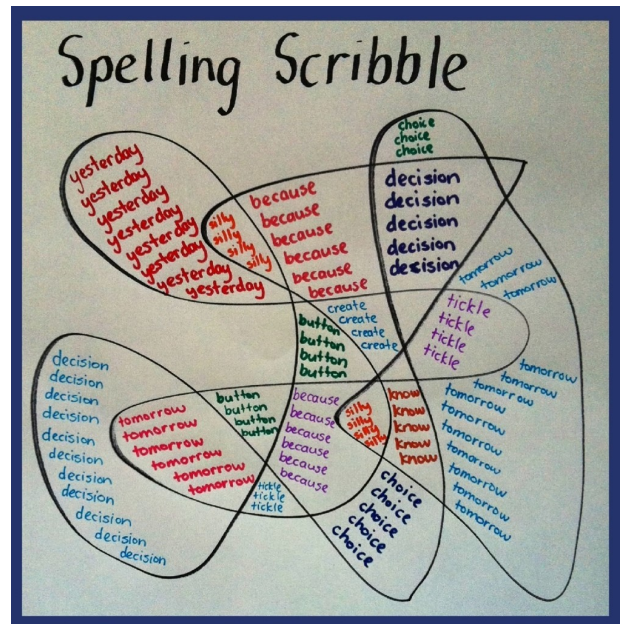 Spelling Scribble
choice
choice
choice
yesterday
yesterday
yesterday
yesterday
yesterday
yesterday
yesterday
yesterday
silly
silly
silly
silly
because
because
because
because
because
because
decision
decision
decision
decision
decision
tomorrow
tomorrow
tomorrow
create
create
create
create
tickle
tickle
tickle
tickle
button
button
button
button
decision
decision
decision
decision
decision
decision
decision
decision
decision
decision
decision
tomorrow
tomorrow
tomorrow
tomorrow
tomorrow
tomorrow
button
button
button
button
because
because
because
because
because
because
silly
silly
silly
silly
know
know
know
know
know
tomorrow
tomorrow
tomorrow
tomorrow
tomorrow
tomorrow
tomorrow
tomorrow
tomorrow
tomorrow
tickle
tickle
tickle
choice
choice
choice
choice
choice